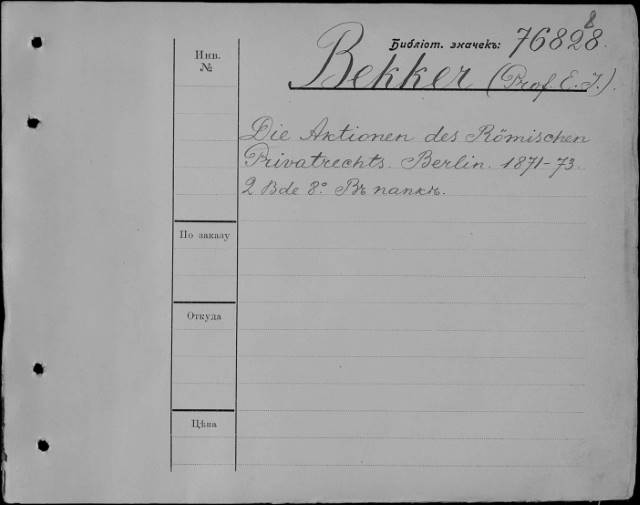 Библіот. значекъ: 76828.
8
Инв.
№
Bekker (Prof. E. I.).
Die Aktionen des Römischen
Privatrechts. Berlin. 1871-73.
2 Bde 8° Въ папкѣ.
По заказу
Откуда
Цѣна